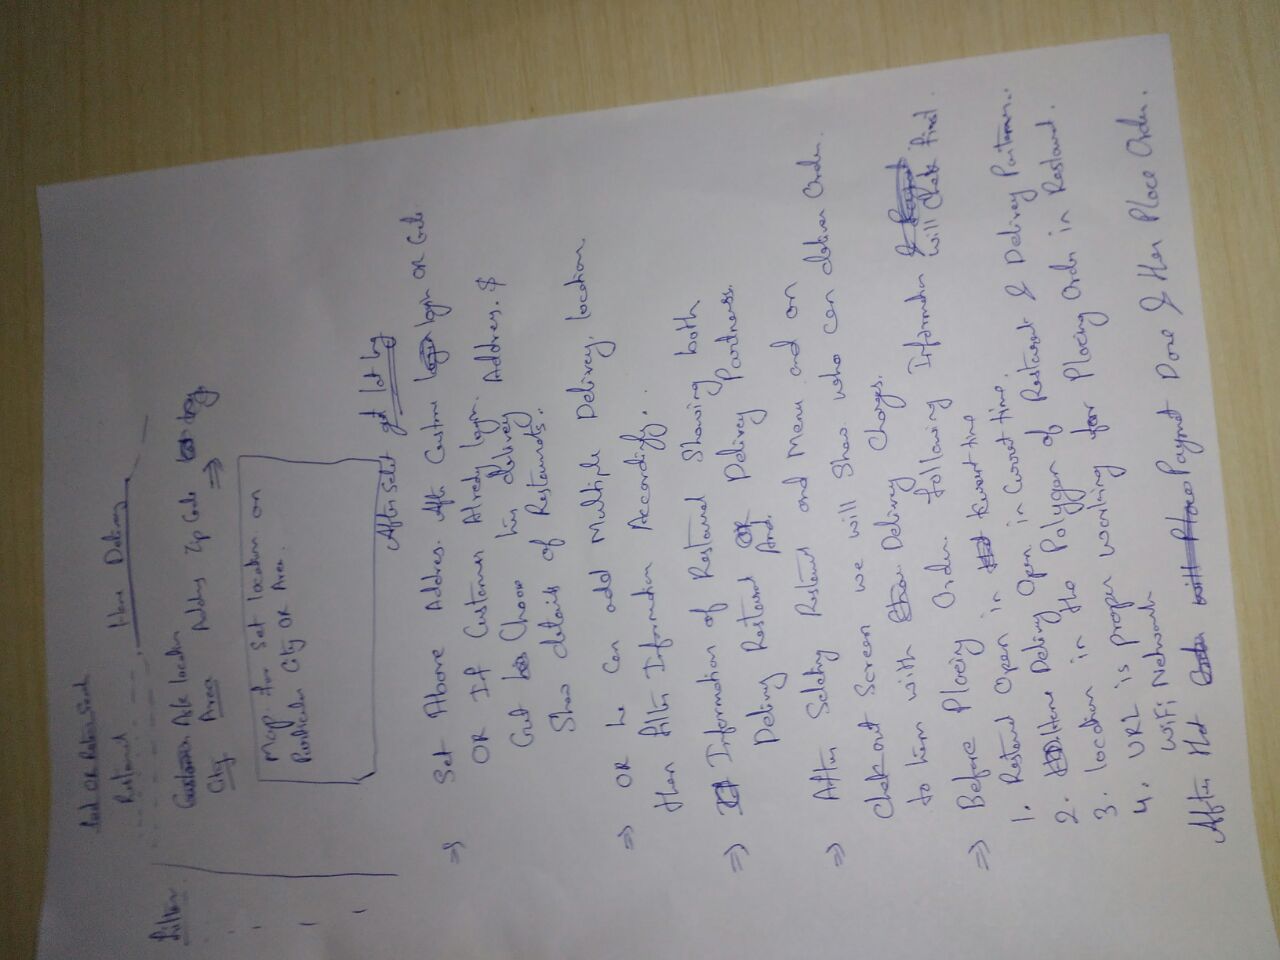 Restaurant Home Delivery
Filter
Customer Ask location
City Area Address Zip Code lat long
Map for Set location on
Particular City OR Area.
After Select get lat lng
=> Set Above Address. After Custome login OR Gust
OR If Customer Already login.
Gust Choose him delivery Address. &
Show details of Restaurants.
=> OR he Can add Multiple Delivey, location
then filter Information Accordigly.
=> Information of Restaurant Showing both
Delivery Restaurant And Delivery Partners.
=> After Selecting Restaurant and Menu and on
Checkout Screen we will Show who can deliver Order.
to him with Delivery Charges.
=> Before Placing Order following Information will Check First.
1. Restaurant Open in Current time
2. Home Delivery Open in Current time.
3. location in the Polygon of Restaurant & Delivery Partners.
4. URL is proper working for Placing Order in Restaurant.
WiFi Network
After that Payment Done & then Place Order.